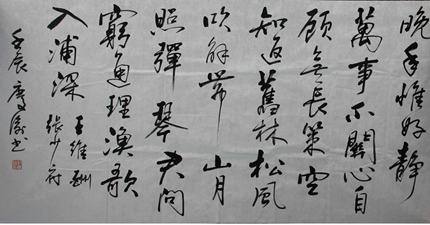 晚年惟好靜
萬事不關心自
顧無長策空
知返舊林松風
吹解帶山月
照彈琴君問
窮通理漁歌
入浦深
王維酬
張少府
壬辰书